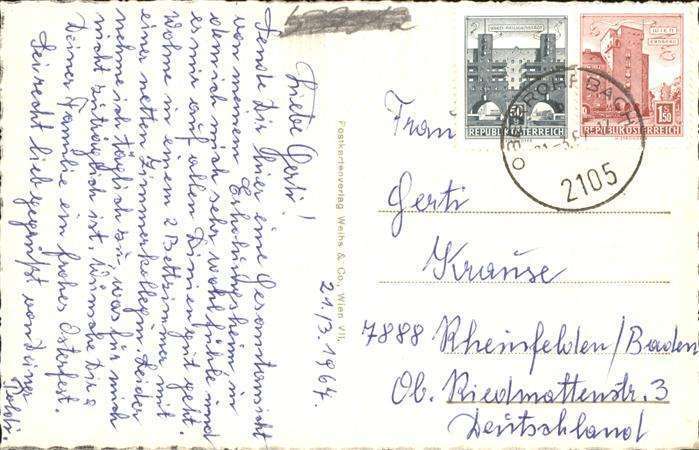 Liebe Gerti!
21/3. 1967.
Sende Dir hier eine Gesamtansicht
von meinem Erholungsheim in
welchem ich mich sehr wohl fühle und
es mir auf allen Linien gut geht.
Wohne in einem 2 Bettzimmer mit
einer netten Zimmerkollegin. Leider
nehme ich täglich zu, was für mich
nicht zuträglich ist. Wünsche Dir u
Deiner Familie ein frohes Osterfest.
Sei recht lieb gegrüßt von Deiner
Postkartenverlag Weihs & Co., Wien VII,
REPUBLIK ÖSTERREICH
1.50
REPUBLIK ÖSTERREICH
2105
Frau
Gerti
Krause
7888 Rheinfelden/Baden
Ob. Riedmattenstr. 3
Deutschland